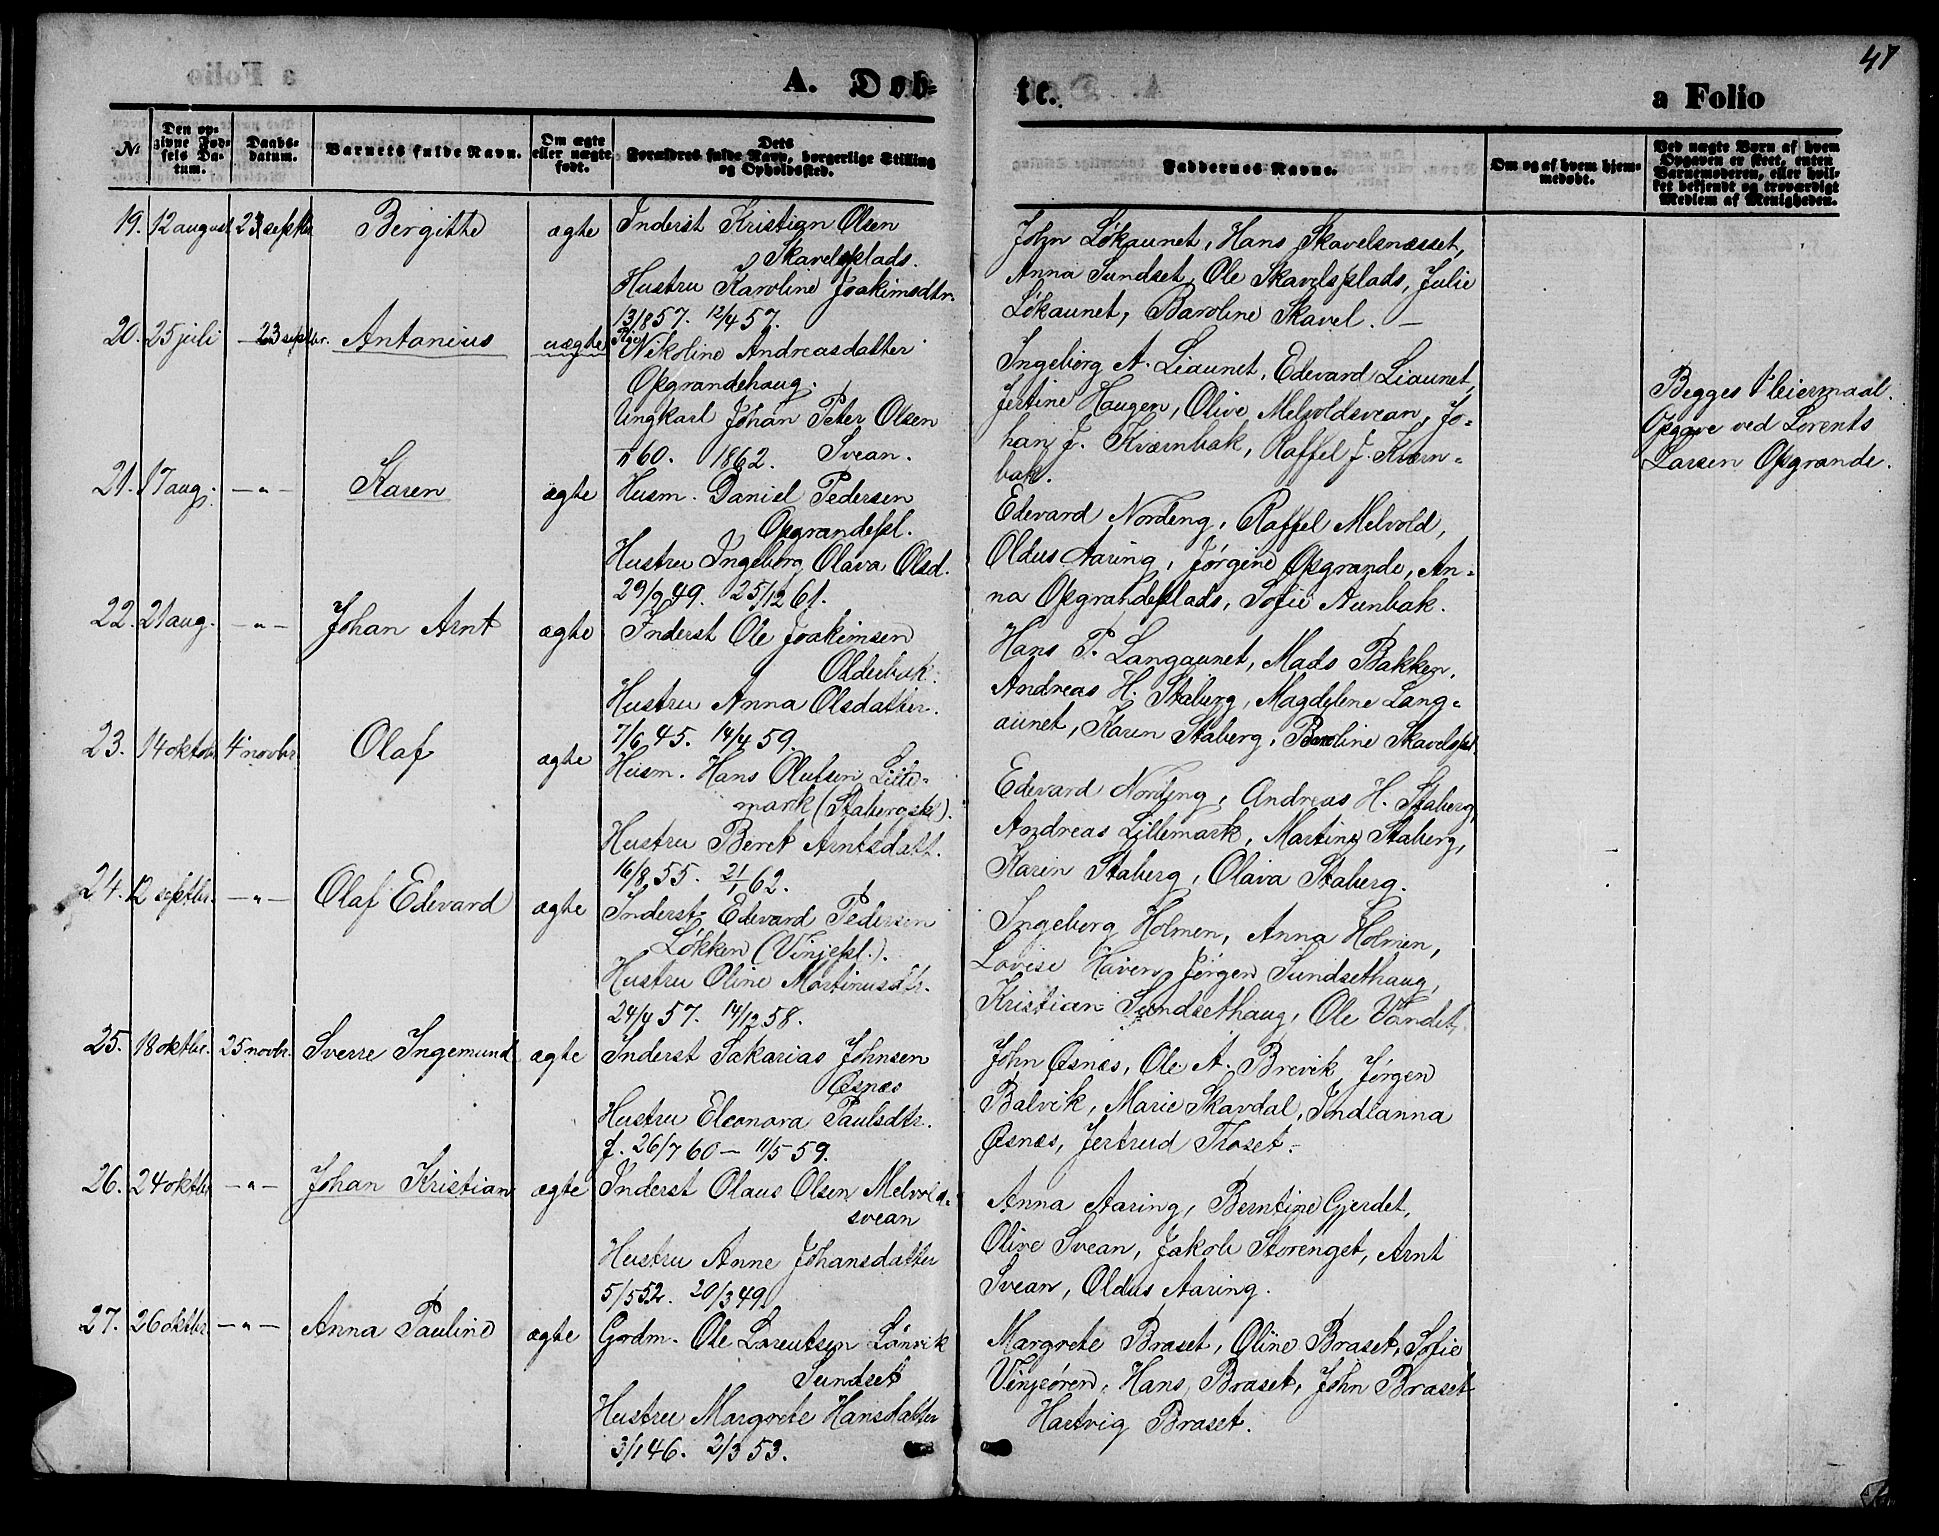 47
a Folio
A. Døb-
te.
a Folio
No
Den op-
givne Fød-
sels Da-
tum.
Daabs-
datum.
Barnets fulde Navn.
Om ægte
eller uægte
født.
Dets
Forældres fulde Navn, borgerlige Stilling
og Opholdssted.
Faddernes Navne.
Om og af hvem hjem-
medøbt.
Ved uægte Børn af hvem
Opgaven er skeet, enten
Barnemoderen, eller hvil-
ket bekjendt og troværdigt
Medlem af Menigheden.
19. 12 august 23 septbr Bergitte ægte Inderst Kristian Olsen
Skavelsplads.
Hustru Karoline Joakimsdtr.
13/8 57. 12/4 57.
John Løkaunet, Hans Skavelsnæsset,
Anna Sundset, Ole Skavelsplads, Julie
Løkaunet, Baroline Skavel. —
20. 25 juli 23 septbr. Antonius uægte Pige
Nikoline Andreasdatter
Opgrandehaug.
Ungkarl Johan Peter Olsen
60. 1862. Svean.
Ingeborg A. Liaunet, Edevard Liaunet,
Jertine Haugen, Olive Melvoldsvean, Jo-
han J. Kværnbak, Raffel J. Kværn-
bak.
Begges 1' leiermaal.
Opgave ved Lorents
Larsen Opgrande.
21. 17 aug. —"— Karen ægte Husm. Daniel Pedersen
Opgrandepl.
Hustru Ingeborg Olava Olsd.
29/9 49. 25/12 61.
Edevard Nordeng, Raffel Melvold,
Oldus Aaring, Jørgine Opgrande, An-
na Opgrandeplads, Sofie Aunbak.
22. 21 aug. —"— Johan Arnt ægte Inderst Ole Joakimsen
Olderbak.
Hustru Anna Olsdatter.
7/6 45. 14/4 59.
Hans P. Langaunet, Mads Bakken,
Andreas H. Staberg, Magdelene Lang-
aunet, Karen Staberg, Baroline Skavelspl.
23. 14 oktobr 4' novbr. Olaf ægte Husm. Hans Olufsen Lille-
mark (Stabergsk').
Hustru Beret Arntsdatt.
16/8 55. 21/1 62.
Edevard Nordeng, Andreas H. Staberg,
Andreas Lillemark, Martine Staberg,
Karen Staberg, Olava Staberg.
24. 12 septbr. —"— Olaf Edevard ægte Inderst Edevard Pedersen
Løkken (Vinjepl.).
Hustru Oline Martinusdtr.
24/4 57. 14/12 58.
Ingeborg Holmen, Anna Holmen,
Lovise Haven, Jørgen Sundsethaug,
Kristian Sundsethaug, Ole Vandet,
25. 18 oktbr. 25 novbr. Sverre Ingemund ægte Inderst Sakarias Johnsen
Øsnæs
Hustru Eleonora Paulsdtr.
f. 26/7 60 — 11/5 59.
John Øsnæs, Ole A. Brevik, Jørgen
Balvik, Marie Skavdal, Indianna
Øsnæs, Jertrud Troset.
26. 24 oktbr —"— Johan Kristian ægte Inderst Olaus Olsen Melvold-
svean
Hustru Anne Johansdatter
5/5 52. 20/3 49.
Anna Aaring, Berntine Gjerdet,
Olive Svean, Jakob Storenget, Arnt
Svean, Oldus Aaring.
27. 26 oktbr —"— Anna Pauline ægte Gaardm. Ole Lorentsen Lønvik
Sundset
Hustru Margrete Hansdatter
3/1 46. 2/3 53.
Margrete Braset, Oline Braset, Sofie
Vinjeøren, Hans Braset, John Braset
Hartvig Braset.